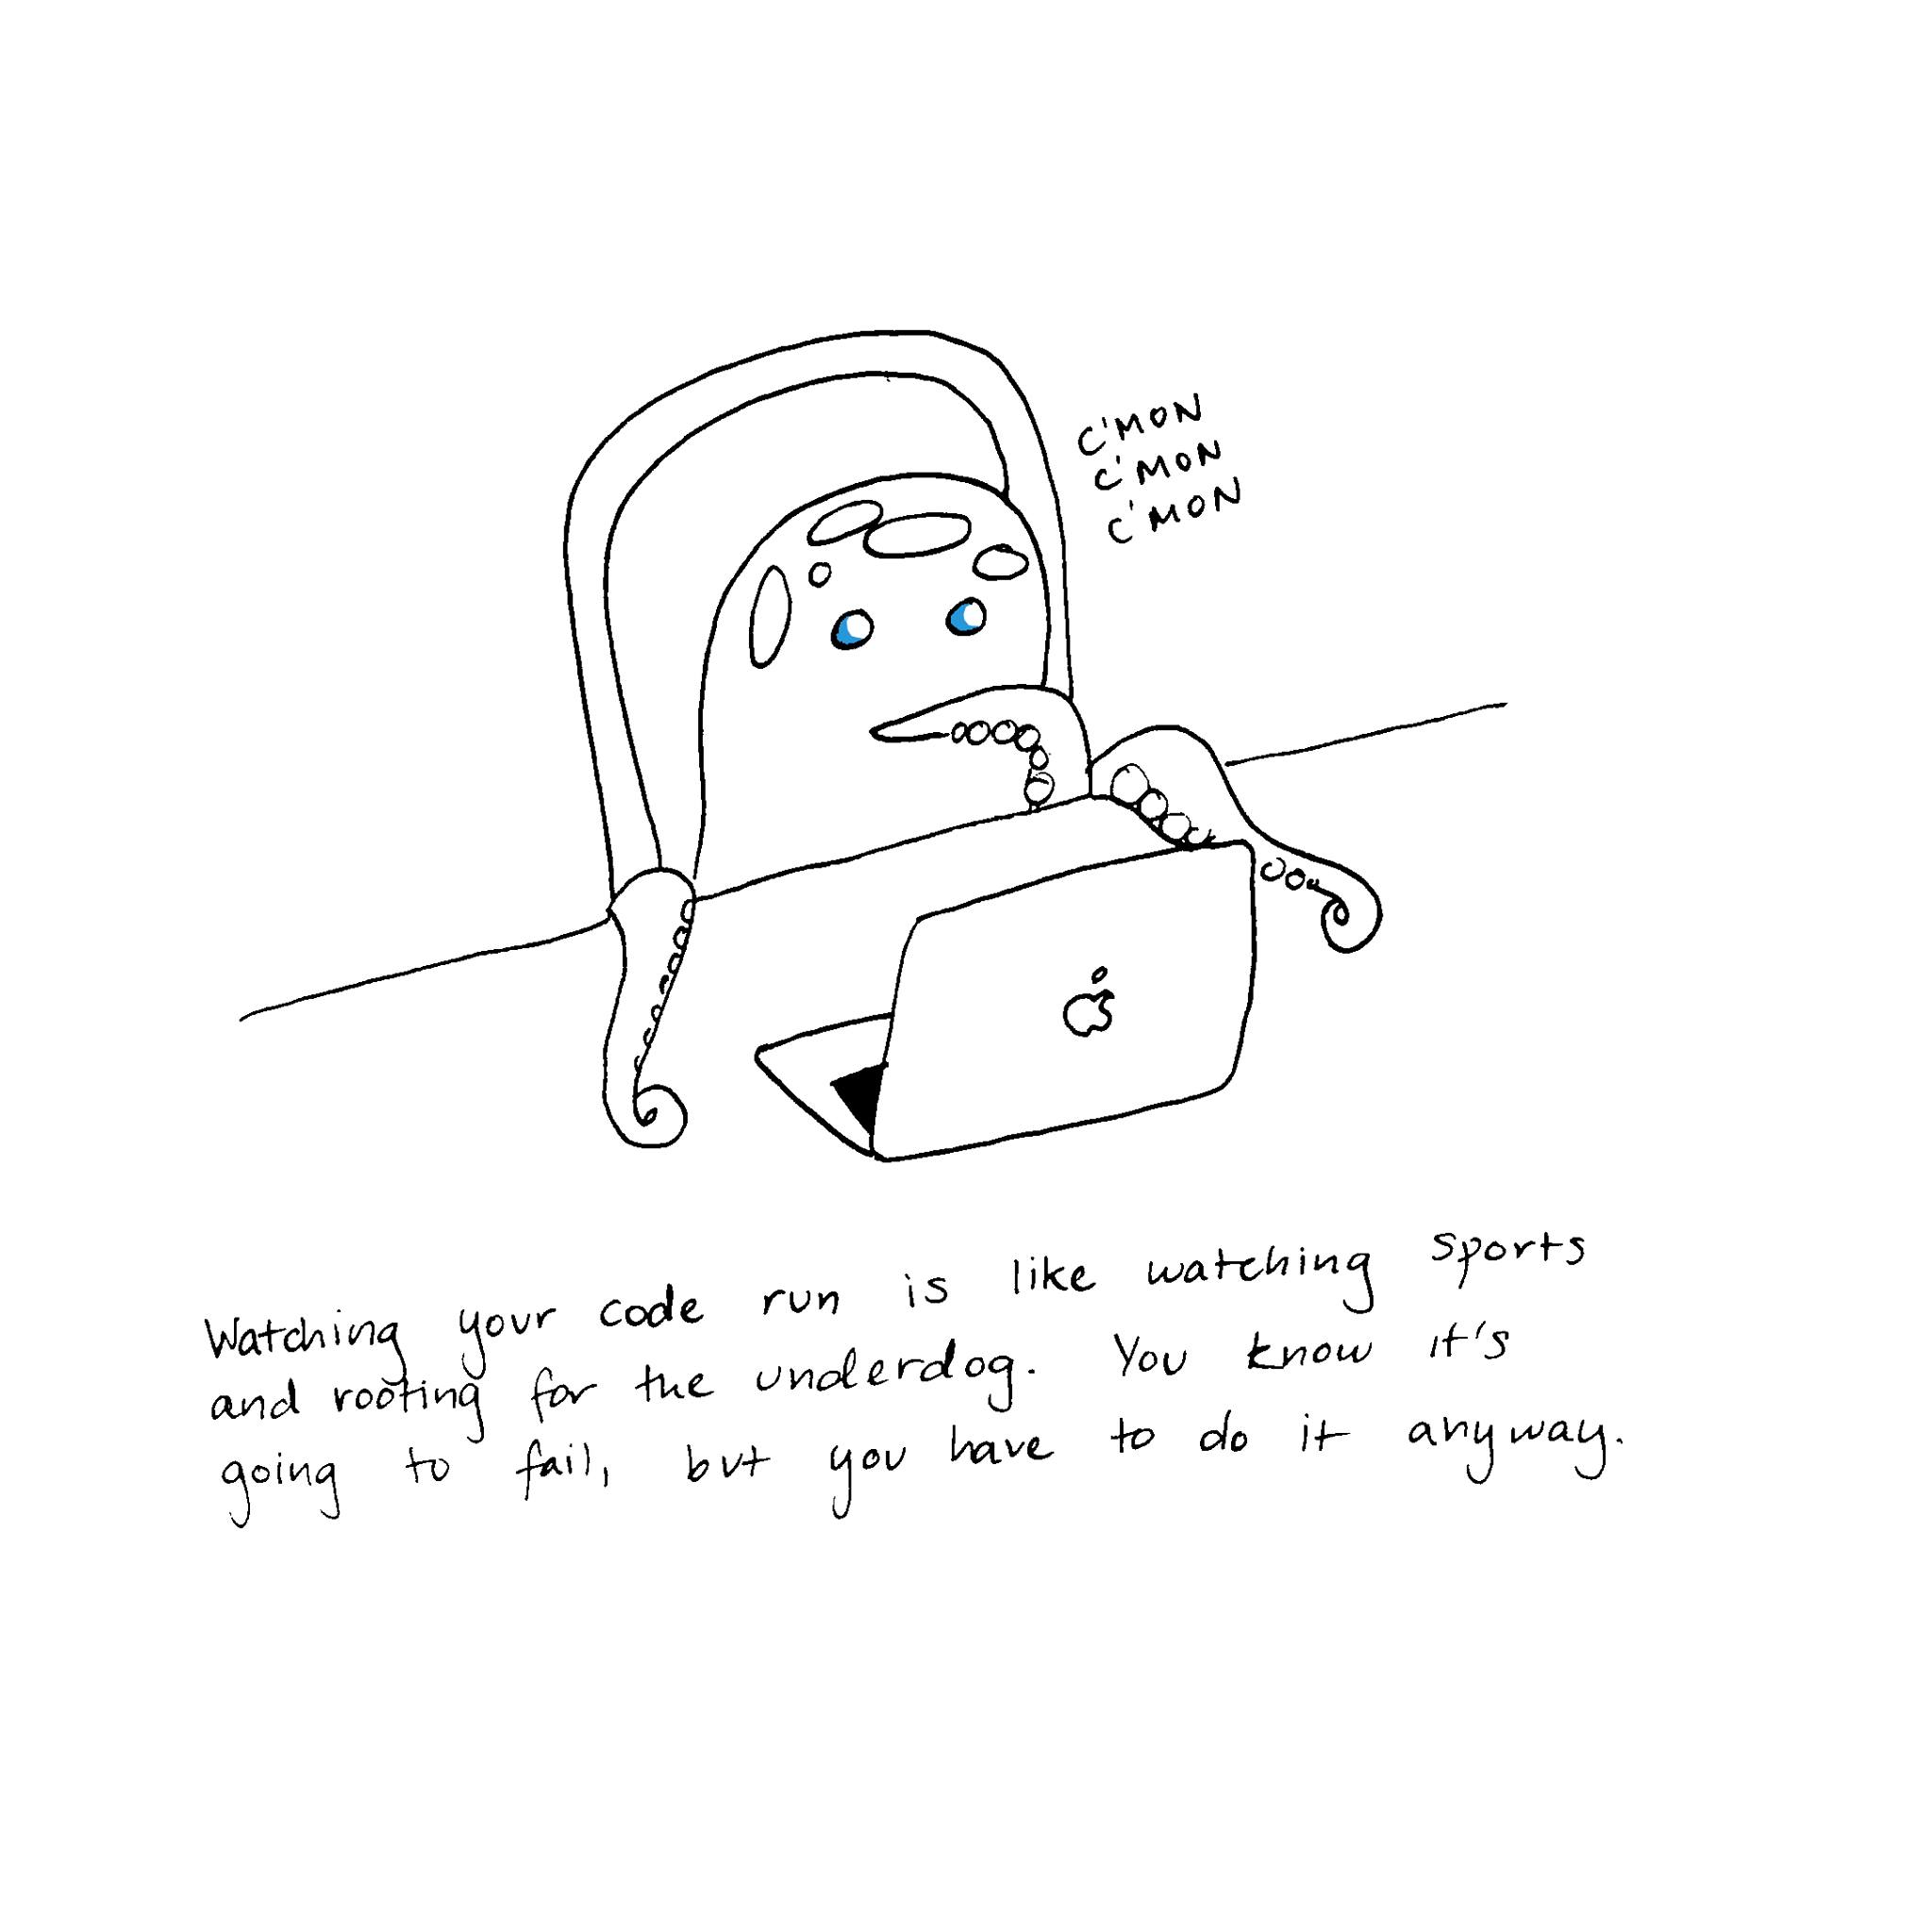 C'MON
C'MON
C'MON
Watching your code run is like watching sports
and rooting for the underdog. You know it's
going to fail, but you have to do it anyway.